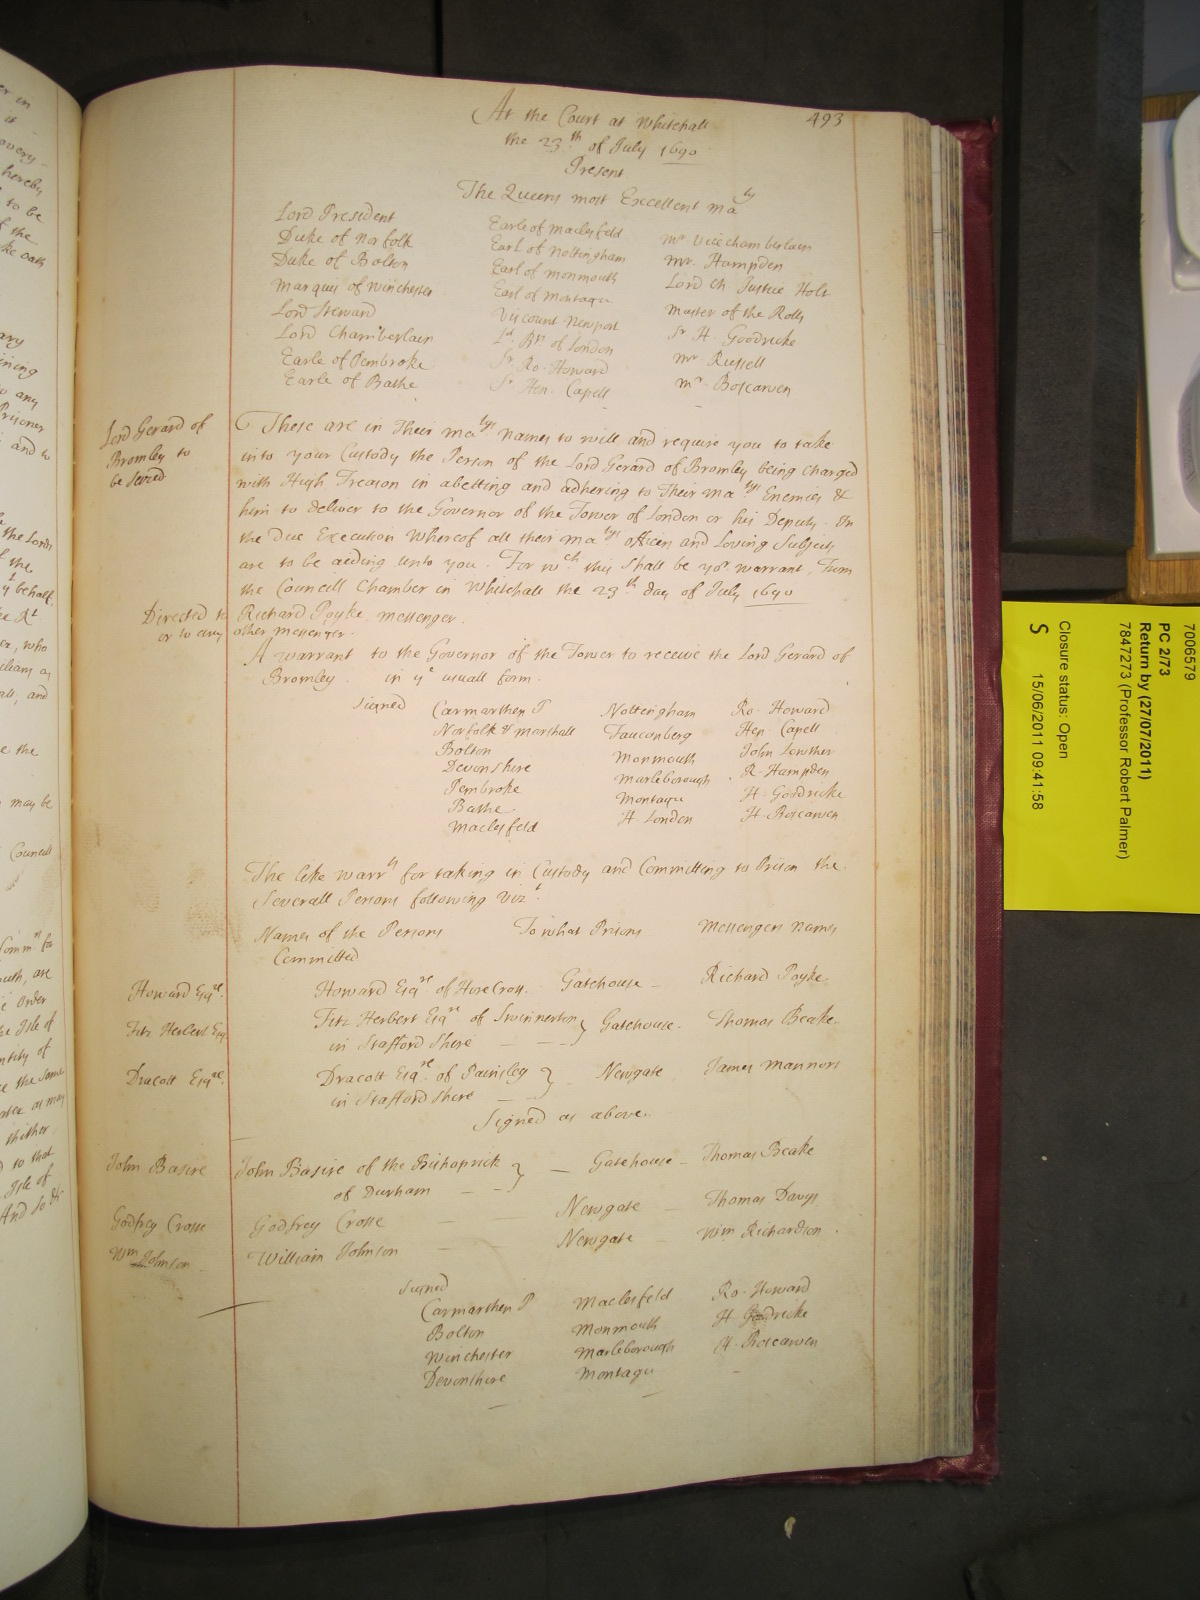 493
At the Court at Whitehall
the 23th of July 1690
Present
The Queens most Excellent Maty
Lord President
Duke of Norfolk
Duke of Bolton
Marques of Winchester
Lord Steward
Lord Chamberlain
Earle of Pembroke
Earle of Bathe
Earle of Maclesfeld
Earl of Nottingham
Earl of Monmouth
Earl of Montagu
Viscount Newport
Ld Bp of London
Sr Ro. Howard
Sr Hen. Capell
Mr Vicechamberlain
Mr. Hampden
Lord Ch Justice Holt
Master of the Rolls
Sr H. Goodricke
Mr. Russell
Mr. Boscawen
Lord Gerard of
Bromley to
be seized
These are in Their Matys Names to will and require you to take
into your Custody the Person of the Lord Gerard of Bromley being charged
with High Treason in abetting and adhering to Their Matys Enemies &
him to deliver to the Governor of the Tower of London or his Deputy. In
the Due Execution Whereof all their Matys officers and Loving Subjects
are to be aiding unto you. For wch this shall be yor warrant, From
the Councell Chamber in Whitehall the 23th day of July 1690
Directed to Richard Poyke Messenger.
or to any other Messenger.
A warrant to the Governor of the Tower to receive the Lord Gerard of
Bromley in ye usuall form.
Signed
Carmarthen P
Norfolk & Marshall
Bolton
Devonshire
Pembroke
Bathe
Maclesfeld
Nottingham
Fauconberg
Monmouth
Marleborough
Montagu
H. London
Ro. Howard
Hen Capell
John Lowther
R. Hampden
H. Goodricke
H. Boscawen
The like warrts for taking in Custody and Committing to Prison the
Severall Persons following Vizt.
Names of the Persons To what Prisons Messengers Names
Committed
Howard Esqre. Howard Esqre of Hore Cross. Gatehouse Richard Poyke.
Fitz Herbert Esq Fitz Herbert Esqre of Swinnerton Gatehouse. Thomas Beake.
in Stafford Shire
Dracott Esqre. Dracott Esqre of Painsley Newgate James Manners
in Stafford Shire
Signed as above.
John Basire John Basire of the Bishoprick Gatehouse Thomas Beake
of Durham
Godfrey Crosse Godfrey Crosse Newgate Thomas Davys
Wm Johnson William Johnson Newgate Wm Richardson
Signed
Carmarthen P
Bolton
Winchester
Devonshire
Maclesfeld
Monmouth
Marleborough
Montagu
Ro. Howard
H Goodricke
H. Boscawen
7006579
PC 2/73
Return by (27/07/2011)
7847273 (Professor Robert Palmer)
Closure status: Open
S 15/06/2011 09:41:58